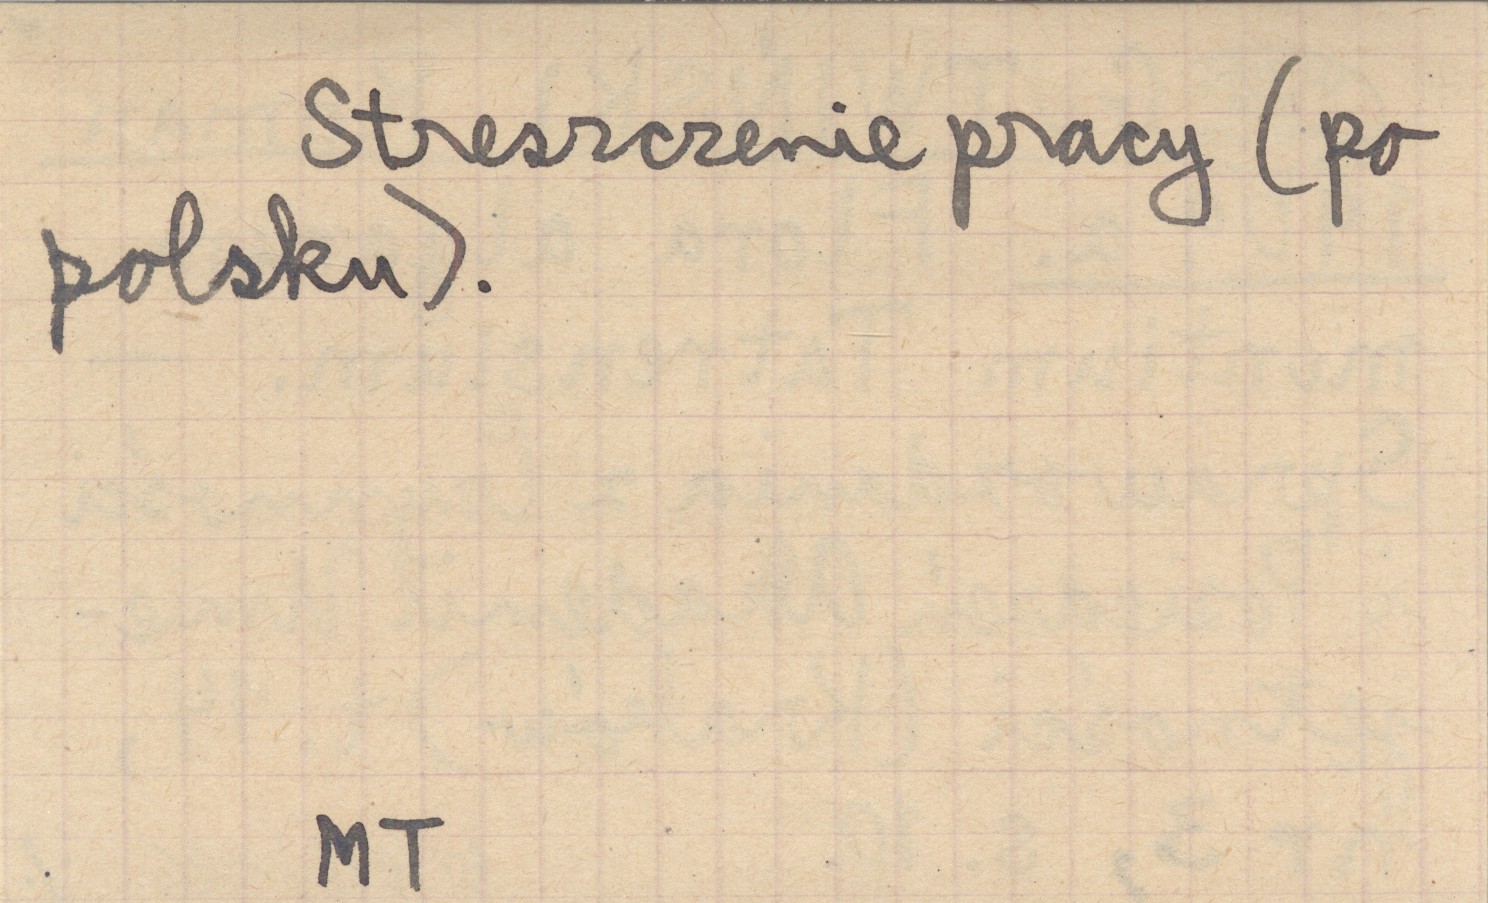 Streszczenie pracy (po
polsku).
MT